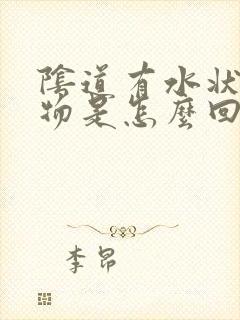 陰道有水狀
物是怎麼回
李昂